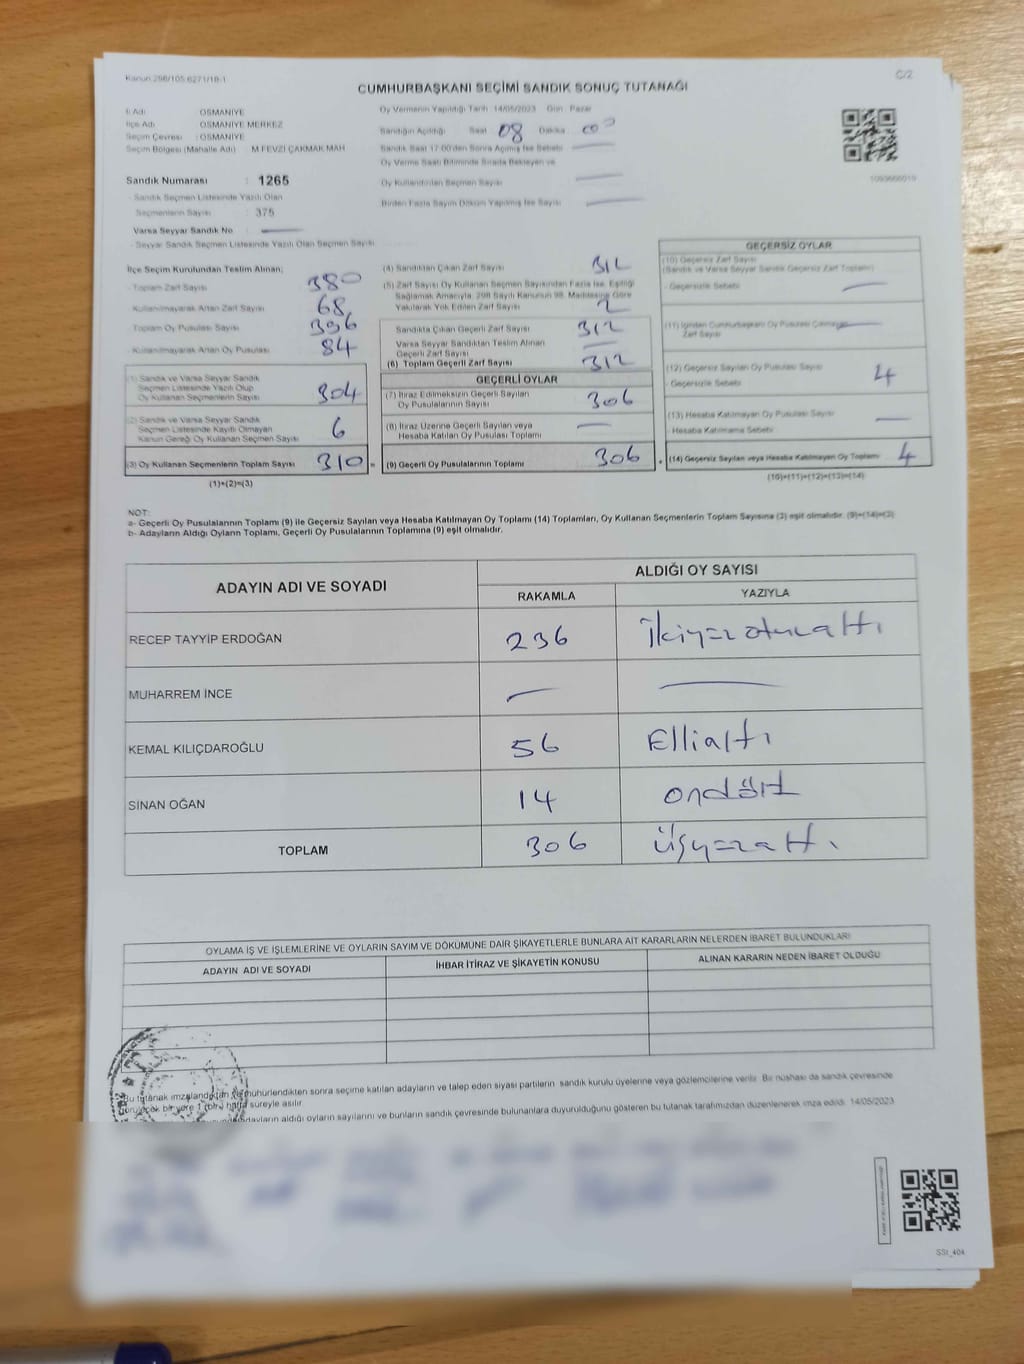 Kanun 298/105 6271/18-1
C/2
CUMHURBAŞKANI SEÇİMİ SANDIK SONUÇ TUTANAĞI
İl Adı OSMANİYE
İlçe Adı OSMANİYE MERKEZ
Seçim Çevresi : OSMANİYE
Seçim Bölgesi (Mahalle Adı) M.FEVZİ ÇAKMAK MAH
Oy Vermenin Yapıldığı Tarih 14/05/2023 Gün Pazar
Sandığın Açıldığı Saat 08 Dakika 00
Sandık Saat 17:00'den Sonra Açılmış İse Sebebi
Oy Verme Saati Bitiminde Sırada Bekleyen ve
Oy Kullandırılan Seçmen Sayısı
Birden Fazla Sayım Döküm Yapılmış İse Sayısı
Sandık Numarası : 1265
- Sandık Seçmen Listesinde Yazılı Olan
Seçmenlerin Sayısı : 375
Varsa Seyyar Sandık No
- Seyyar Sandık Seçmen Listesinde Yazılı Olan Seçmen Sayısı
İlçe Seçim Kurulundan Teslim Alınan;
- Toplam Zarf Sayısı 380
Kullanılmayarak Artan Zarf Sayısı 68
Toplam Oy Pusulası Sayısı 396
- Kullanılmayarak Artan Oy Pusulası 84
(1) Sandık ve Varsa Seyyar Sandık
Seçmen Listesinde Yazılı Olup
Oy Kullanan Seçmenlerin Sayısı 304
(2) Sandık ve Varsa Seyyar Sandık
Seçmen Listesinde Kayıtlı Olmayan
Kanun Gereği Oy Kullanan Seçmen Sayısı 6
(3) Oy Kullanan Seçmenlerin Toplam Sayısı 310 =
(1)+(2)=(3)
(4) Sandıktan Çıkan Zarf Sayısı 312
(5) Zarf Sayısı Oy Kullanan Seçmen Sayısından Fazla İse, Eşitliği
Sağlamak Amacıyla, 298 Sayılı Kanunun 98. Maddesine Göre
Yakılarak Yok Edilen Zarf Sayısı 2
Sandıkta Çıkan Geçerli Zarf Sayısı 312
Varsa Seyyar Sandıktan Teslim Alınan
Geçerli Zarf Sayısı
(6) Toplam Geçerli Zarf Sayısı 312
GEÇERLİ OYLAR
(7) İtiraz Edilmeksizin Geçerli Sayılan
Oy Pusulalarının Sayısı 306
(8) İtiraz Üzerine Geçerli Sayılan veya
Hesaba Katılan Oy Pusulası Toplamı
(9) Geçerli Oy Pusulalarının Toplamı 306 +
GEÇERSİZ OYLAR
(10) Geçersiz Zarf Sayısı
(Sandık ve Varsa Seyyar Sandık Geçersiz Zarf Toplamı)
- Geçersizlik Sebebi
(11) İçinden Cumhurbaşkanı Oy Pusulası Çıkmayan
Zarf Sayısı
(12) Geçersiz Sayılan Oy Pusulası Sayısı 4
- Geçersizlik Sebebi
(13) Hesaba Katılmayan Oy Pusulası Sayısı
- Hesaba Katılmama Sebebi
(14) Geçersiz Sayılan veya Hesaba Katılmayan Oy Toplamı 4
(10)+(11)+(12)+(13)=(14)
NOT:
a- Geçerli Oy Pusulalarının Toplamı (9) ile Geçersiz Sayılan veya Hesaba Katılmayan Oy Toplamı (14) Toplamları, Oy Kullanan Seçmenlerin Toplam Sayısına (3) eşit olmalıdır. (9)+(14)=(3)
b- Adayların Aldığı Oyların Toplamı, Geçerli Oy Pusulalarının Toplamına (9) eşit olmalıdır.
ADAYIN ADI VE SOYADI
ALDIĞI OY SAYISI
RAKAMLA YAZIYLA
RECEP TAYYİP ERDOĞAN 236 İkiyüzotuzaltı
MUHARREM İNCE
KEMAL KILIÇDAROĞLU 56 Ellialtı
SİNAN OĞAN 14 ondört
TOPLAM 306 Üçyüzaltı
OYLAMA İŞ VE İŞLEMLERİNE VE OYLARIN SAYIM VE DÖKÜMÜNE DAİR ŞİKAYETLERLE BUNLARA AİT KARARLARIN NELERDEN İBARET BULUNDUKLARI
ADAYIN ADI VE SOYADI İHBAR İTİRAZ VE ŞİKAYETİN KONUSU ALINAN KARARIN NEDEN İBARET OLDUĞU
Bu tutanak imzalandıktan ve mühürlendikten sonra seçime katılan adayların ve talep eden siyasi partilerin sandık kurulu üyelerine veya gözlemcilerine verilir. Bir nüshası da sandık çevresinde
görülecek bir yere 1 (bir) hafta süreyle asılır.
adayların aldığı oyların sayılarını ve bunların sandık çevresinde bulunanlara duyurulduğunu gösteren bu tutanak tarafımızdan düzenlenerek imza edildi. 14/05/2023
SSt_404